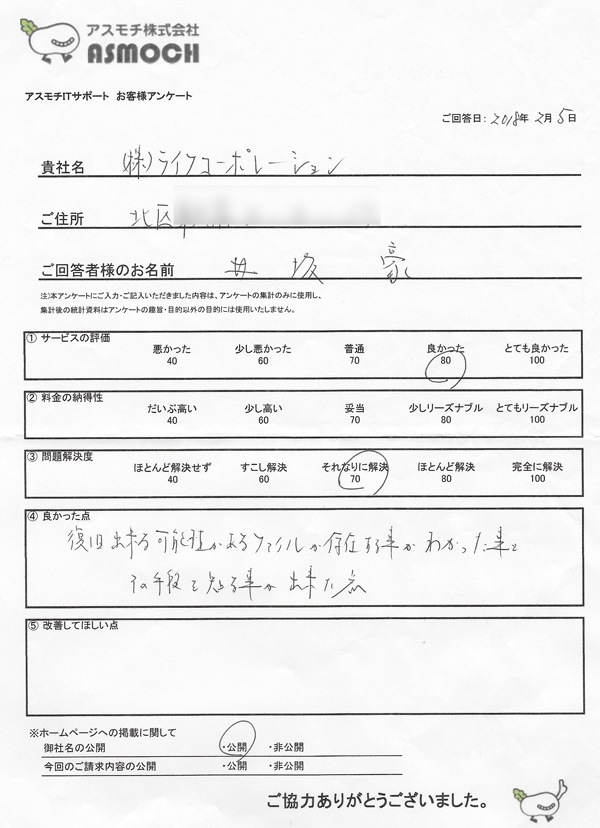 アスモチ株式会社
ASMOCH
アスモチITサポート お客様アンケート
ご回答日: 2018年 2月 5日
貴社名 (株)ライクコーポレーション
ご住所 北区
ご回答者様のお名前 井坂 豪
注)本アンケートにご入力・ご記入いただきました内容は、アンケートの集計のみに使用し、
集計後の統計資料はアンケートの趣旨・目的以外の目的には使用いたしません。
① サービスの評価
悪かった 少し悪かった 普通 良かった とても良かった
40 60 70 80 100
② 料金の納得性
だいぶ高い 少し高い 妥当 少しリーズナブル とてもリーズナブル
40 60 70 80 100
③ 問題解決度
ほとんど解決せず すこし解決 それなりに解決 ほとんど解決 完全に解決
40 60 70 80 100
④ 良かった点
復旧出来る可能性があるファイルが存在する事がわかった事と
その手段を知る事が出来た点
⑤ 改善してほしい点
※ホームページへの掲載に関して
御社名の公開 ・公開 ・非公開
今回のご請求内容の公開 ・公開 ・非公開
ご協力ありがとうございました。